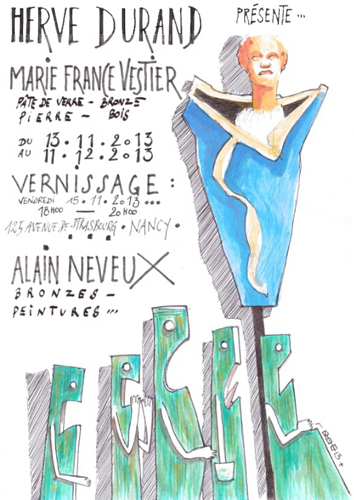 HERVE DURAND PRÉSENTE...
MARIE FRANCE VESTIER
PÂTE DE VERRE - BRONZE
PIERRE - BOIS
DU 13.11.2013
AU 11.12.2013
VERNISSAGE :
VENDREDI 15.11.2013...
18H00 — 20H00
125 AVENUE DE STRASBOURG . NANCY.
ALAIN NEVEUX
BRONZES -
PEINTURES...